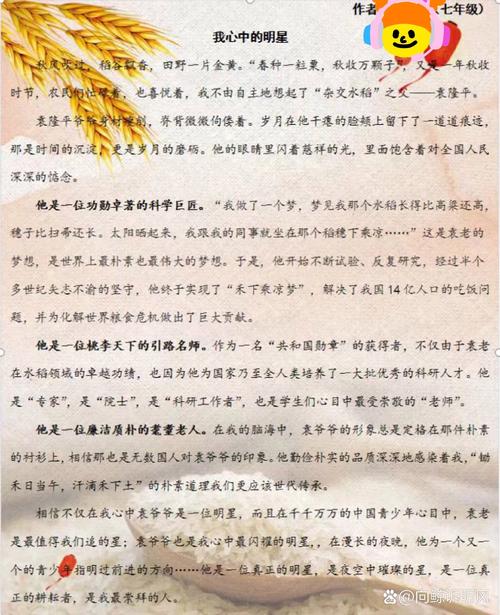 作者
（七年级）
我心中的明星
秋风吹过，稻谷飘香，田野一片金黄。“春种一粒粟，秋收万颗子”，又是一年秋收
时节，农民们忙碌着，也喜悦着，我不由自主地想起了“杂交水稻”之父——袁隆平。
袁隆平爷爷身材瘦削，脊背微微佝偻着。岁月在他干瘪的脸颊上留下了一道道痕迹，
那是时间的沉淀，更是岁月的磨砺。他的眼睛里闪着慈祥的光，里面饱含着对全国人民
深深的惦念。
他是一位功勋卓著的科学巨匠。“我做了一个梦，梦见我那个水稻长得比高粱还高，
穗子比扫帚还长。太阳晒起来，我跟我的同事就坐在那个稻穗下乘凉……”这是袁老的
梦想，是世界上最朴素也最伟大的梦想。于是，他开始不断试验、反复研究，经过半个
多世纪矢志不渝的坚守，他终于实现了“禾下乘凉梦”，解决了我国 14 亿人口的吃饭问
题，并为化解世界粮食危机做出了巨大贡献。
他是一位桃李天下的引路名师。作为一名“共和国勋章”的获得者，不仅由于袁老
在水稻领域的卓越功绩，也因为他为国家乃至全人类培养了一大批优秀的科研人才。他
是“专家”，是“院士”，是“科研工作者”，也是学生们心目中最受崇敬的“老师”。
他是一位廉洁质朴的耄耋老人。在我的脑海中，袁爷爷的形象总是定格在那件朴素
的衬衫上，相信那也是无数国人对袁爷爷的印象。他勤俭朴实的品质深深地感染着我，“锄
禾日当午，汗滴禾下土”的朴素道理我们更应该世代传承。
相信不仅在我心中袁爷爷是一位明星，而且在千千万万的中国青少年心目中，袁老
是最值得我们追的星；袁爷爷也是我心中最闪耀的明星，，在漫长的夜晚，他为一个又一
个的青少年指明过前进的方向……他是一位真正的明星，是夜空中璀璨的星，是一位真
正的耕耘者，是我最崇拜的人。